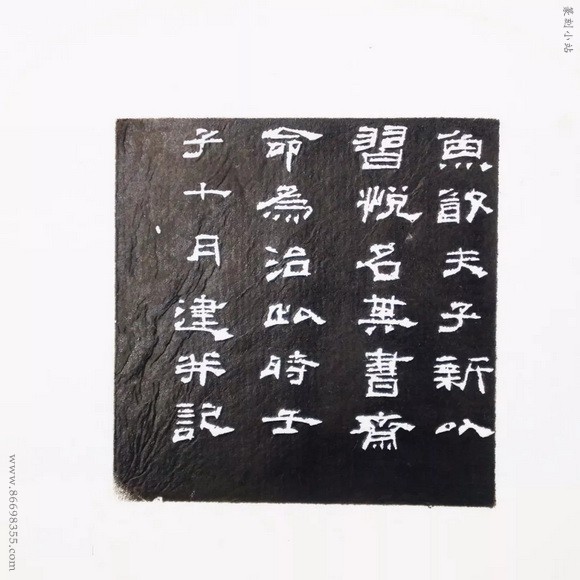 魚夫子新以
習悅名其書齋
命為治此時壬
子十月建并記
篆刻小站
www.86698355.com